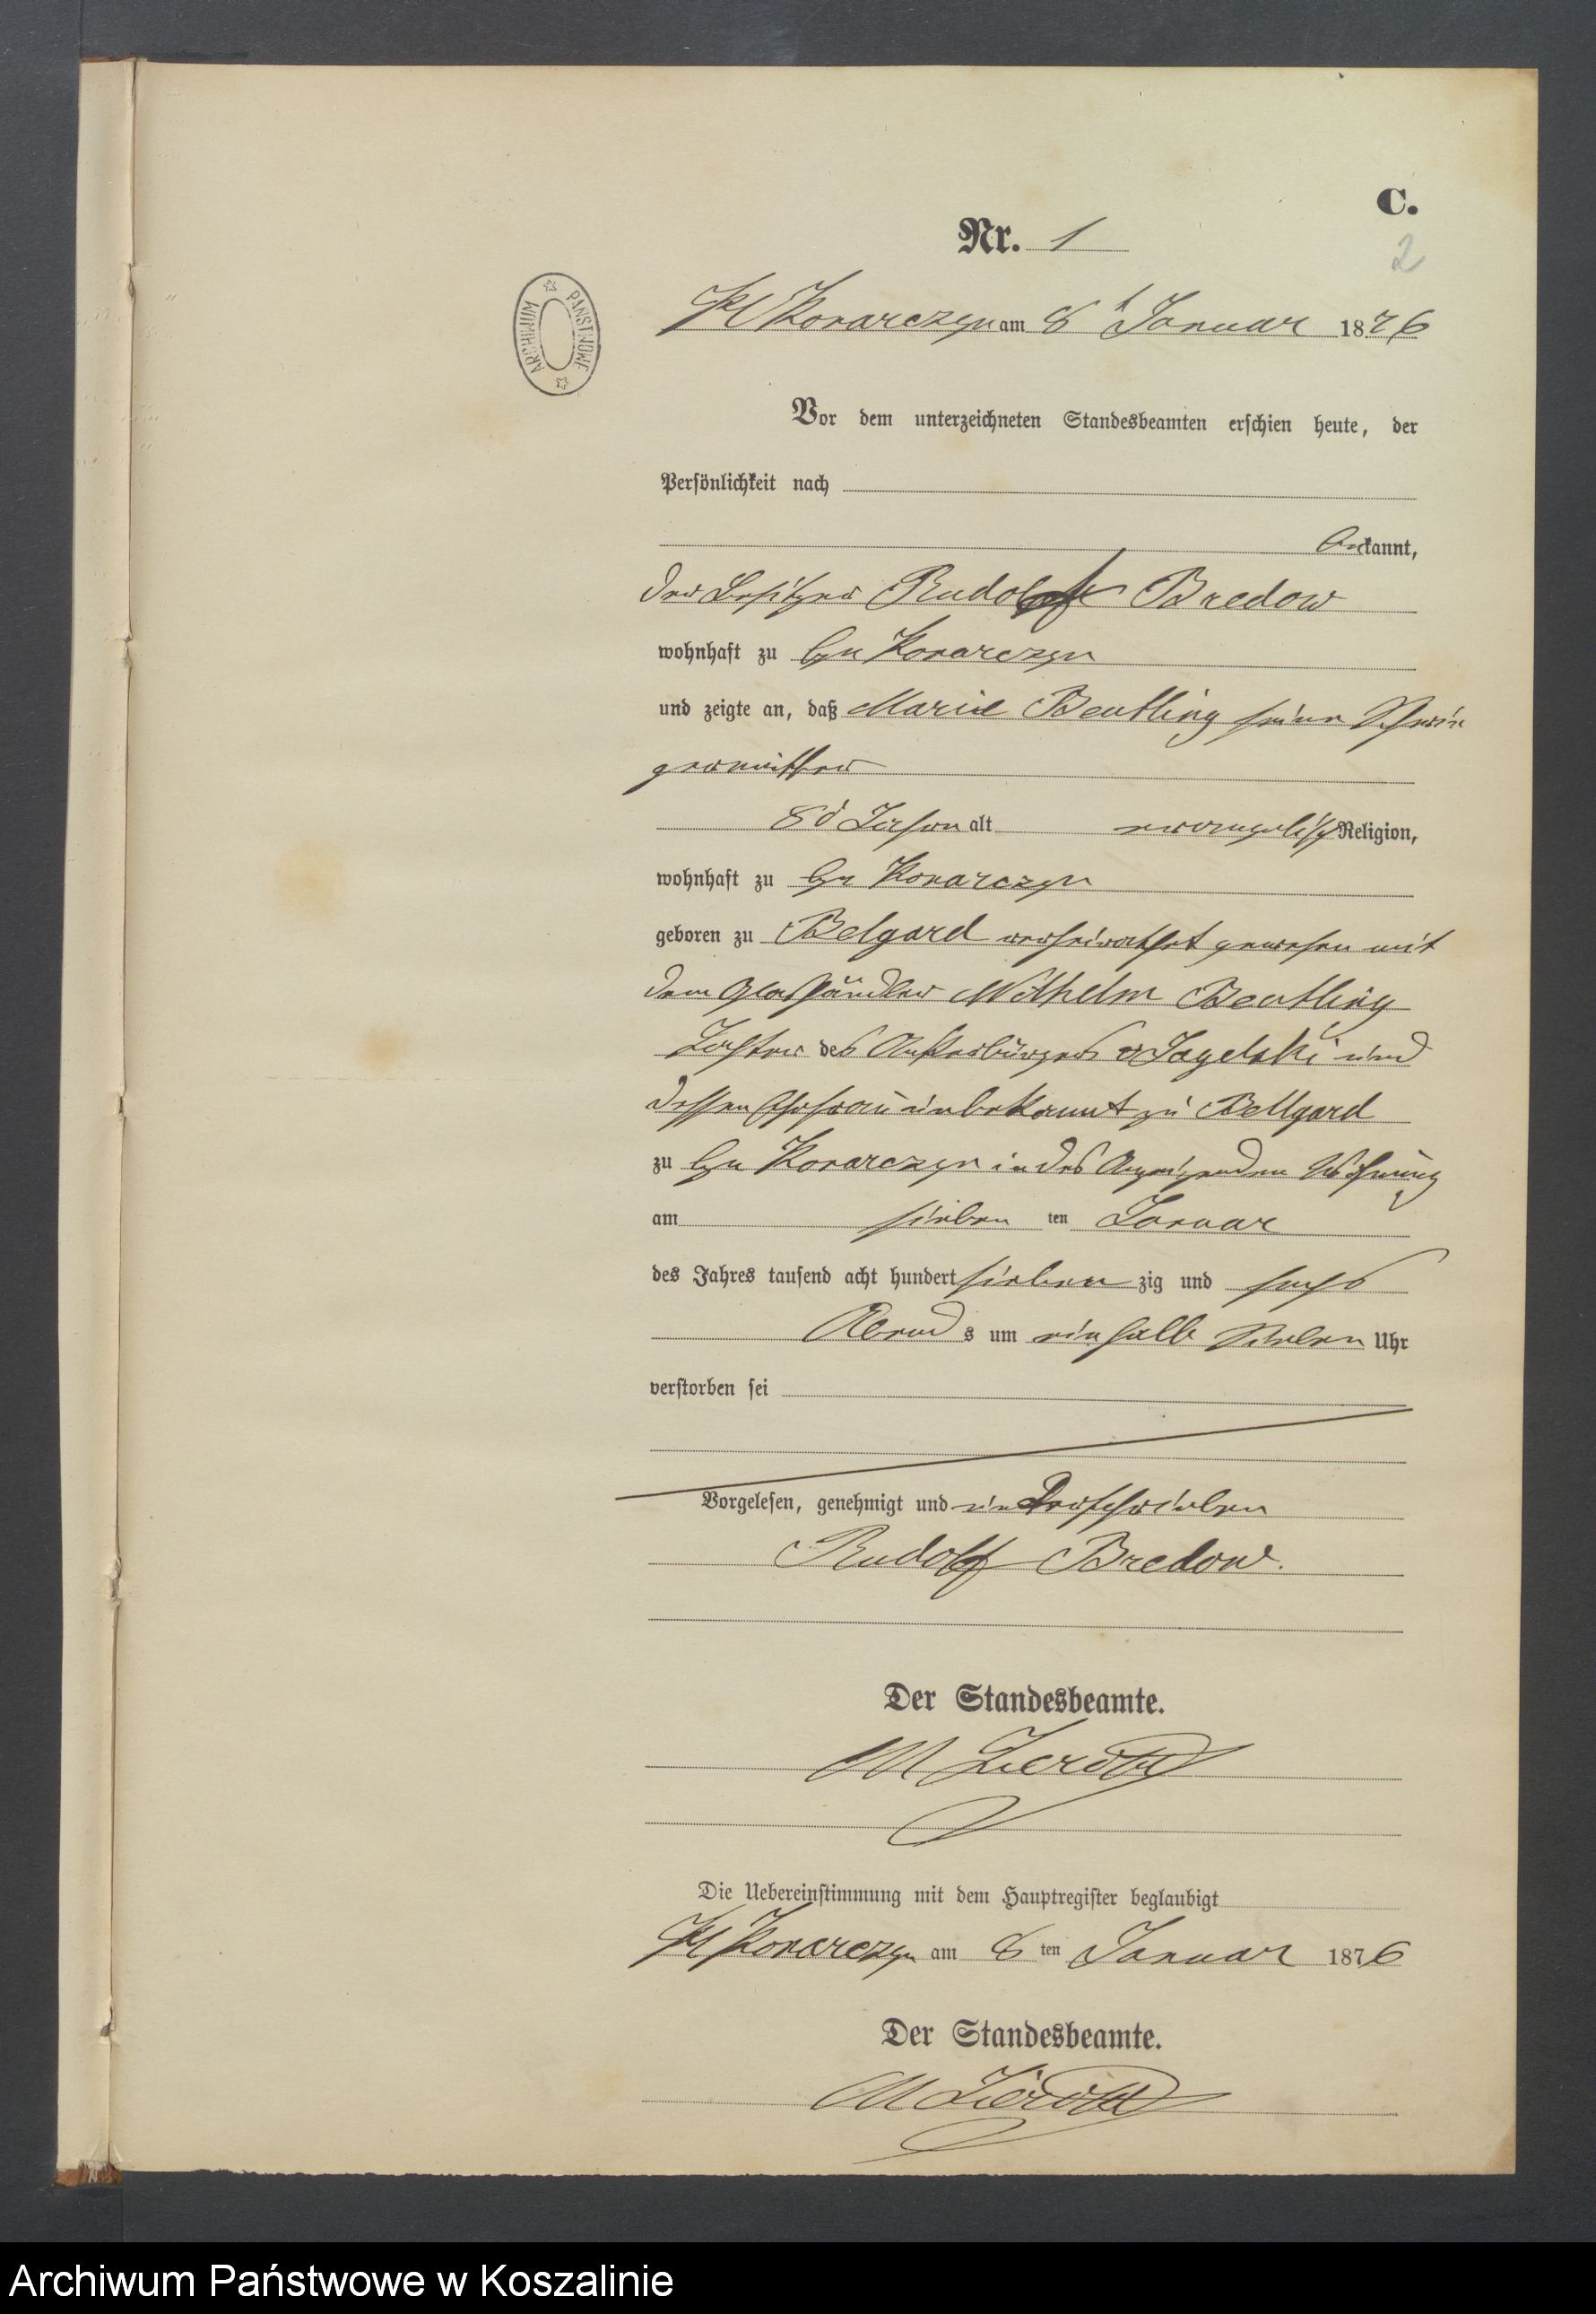 C.
Nr. 1
2
ARCHIWUM PAŃSTWOWE
Kl Konarczyn am 8 t Januar 1876
Vor dem unterzeichneten Standesbeamten erschien heute, der
Persönlichkeit nach
bekannt,
der Besitzer Rudolf Bredow
wohnhaft zu Gr Konarczyn
und zeigte an, daß Marie Beutling seine Schwie
germutter
80 Jahren alt evangelisch Religion,
wohnhaft zu Gr Konarczyn
geboren zu Belgard verheirathet gewesen mit
dem Glashändler Wilhelm Beutling
Tochter des Ackerbürgers Jagelski und
dessen Ehefrau unbekannt zu Bellgard
zu Gr Konarczyn in des Anzeigenden Wohnung
am sieben ten Januar
des Jahres tausend acht hundert sieben zig und sechs
Abend s um ein halb Sieben Uhr
verstorben sei
Vorgelesen, genehmigt und unterschrieben
Rudolf Bredow.
Der Standesbeamte.
M
Die Uebereinstimmung mit dem Hauptregister beglaubigt
Kl Konarczyn am 8 ten Januar 1876
Der Standesbeamte.
M
Archiwum Państwowe w Koszalinie